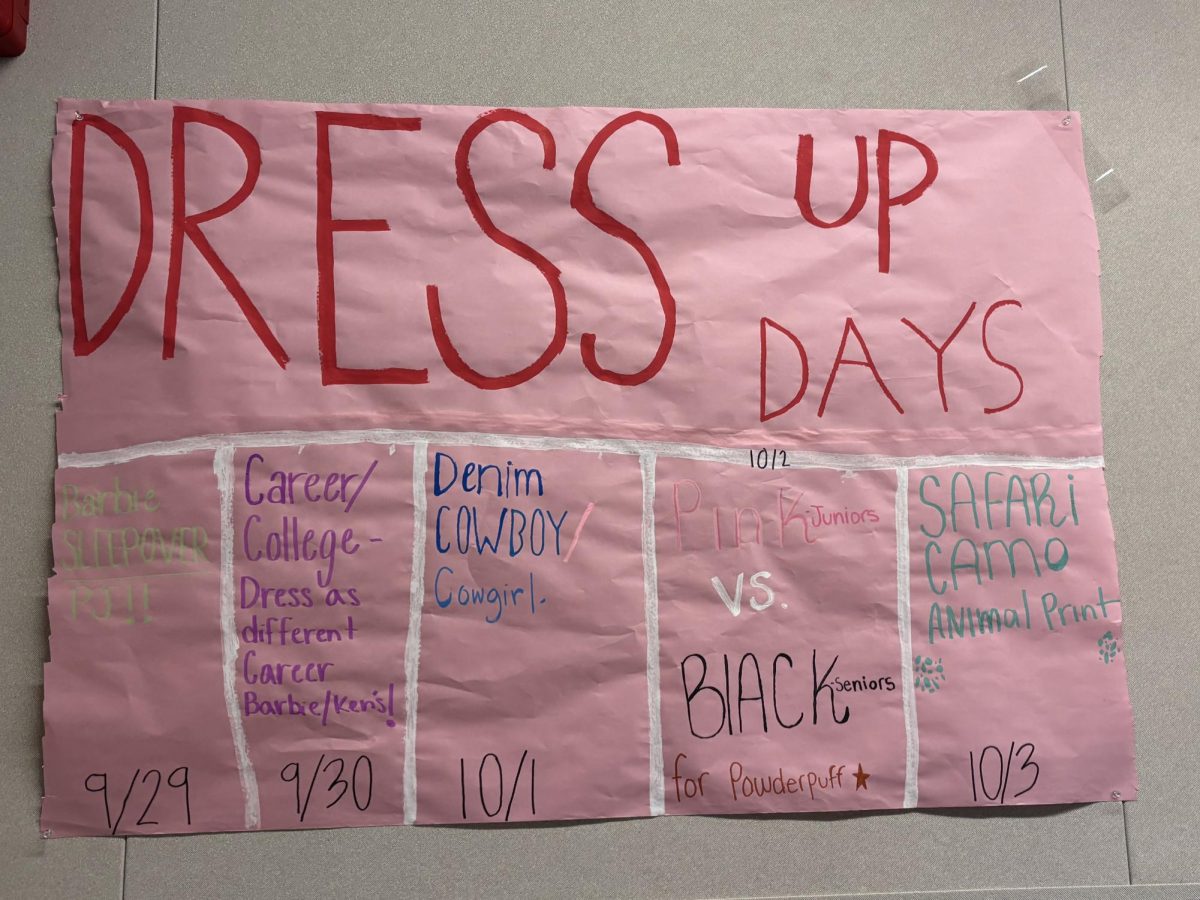 DRESS UP
DAYS
Barbie
SLEEPOVER
PJ!!
9/29
Career/
College-
Dress as
different
Career
Barbie/Ken's!
9/30
Denim
COWBOY/
Cowgirl.
10/1
10/2
Pink-Juniors
VS.
BlACK-seniors
for Powderpuff
SAFARi
CAMO
ANIMal Print
10/3